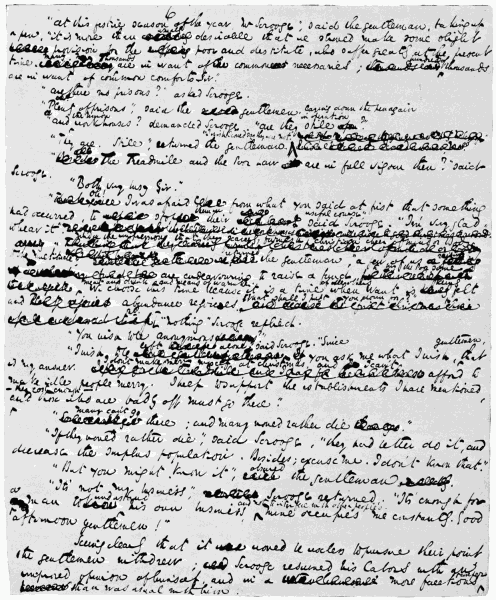 6
"At this festive season of the year Mr Scrooge", said the gentleman, taking up
a pen, "it is more than usually desirable that we should make some slight
provision for the poor and destitute, who suffer greatly at the present
time. Many thousands are in want of common necessaries; hundreds of thousands
are in want of common comforts Sir."
"Are there no prisons?" asked Scrooge.
"Plenty of prisons", said the gentleman, laying down the pen again
"And the Union workhouses?" demanded Scrooge "Are they still in operation?"
"They are. Still", returned the gentleman. "I wish I could say they were not."
"The Treadmill and the Poor Law are in full vigour then?" said
Scrooge.
"Both very busy Sir."
"Oh! I was afraid from what you said at first that something
had occurred, to stop them in their useful course", said Scrooge. "I'm very glad
to hear it."
the gentleman, "a few of us
are endeavouring to raise a fund to buy the Poor some
meat and drink and means of warmth. We choose this time because it is a time when Want is keenly felt
and abundance rejoices. What shall I put you down for?"
"Nothing" Scrooge replied.
"You wish to be anonymous?"
"I wish to be left alone", said Scrooge. "Since you ask me what I wish, gentlemen, that
is my answer. I don't make merry myself at Christmas, and I can't afford to
make idle people merry. I help to support the establishments I have mentioned;
they cost enough: and those who are badly off must go there."
"Many can't go there; and many would rather die."
"If they would rather die", said Scrooge, "they had better do it, and
decrease the surplus population. Besides; excuse me. I don't know that"
"But you might know it"; observed the gentleman.
"It's not my business"; Scrooge returned; "It's enough for
a man to understand his own business, and not to interfere with other people's. Mine occupies me constantly. Good
afternoon gentlemen!"
Seeing clearly that it would be useless to pursue their point
the gentlemen withdrew; Scrooge resumed his labors with an
improved opinion of himself, and in a more facetious temper
than was usual with him.